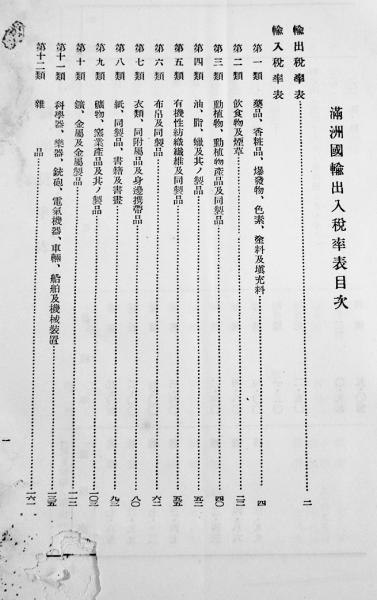 滿洲國輸出入稅率表目次
輸出稅率表 二
輸入稅率表
第一類 藥品、香粧品、爆發物、色素、塗料及塡充料 四
第二類 飮食物及煙草
第三類 動植物、動植物產品及同製品 四〇
第四類 油、脂、蠟及其ノ製品 五二
第五類 有機性紡織纖維及同製品 五五
第六類 布帛及同製品 六二
第七類 衣類、同附屬品及身邊携帶品 八〇
第八類 紙、同製品、書籍及書畫 九二
第九類 礦物、窯業產品及其ノ製品 一〇三
第十類 鑛、金屬及金屬製品 一一三
第十一類 科學器、樂器、銃砲、電氣機器、車輛、船舶及機械裝置 一三五
第十二類 雜品 一六一
一